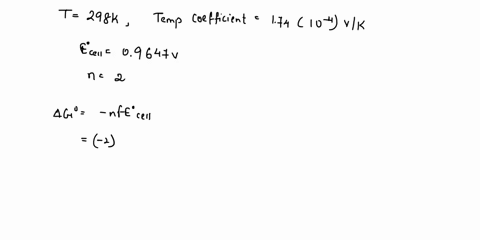 T = 298k, Temp coefficient = 1.74 (10⁻⁴) V/K
E°cell = 0.9647 v
n = 2
ΔG° = -nfE°cell
= (-2)